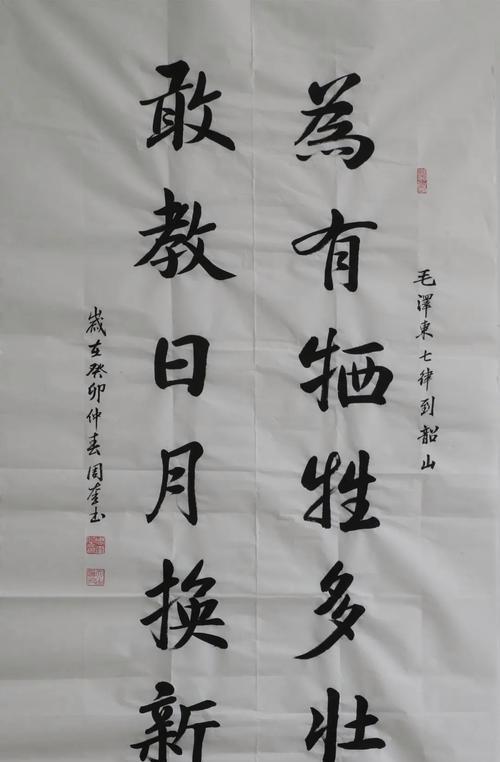 毛澤東七律到韶山
為有牺牲多壮
敢教日月換新
歲在癸卯仲春周奎书